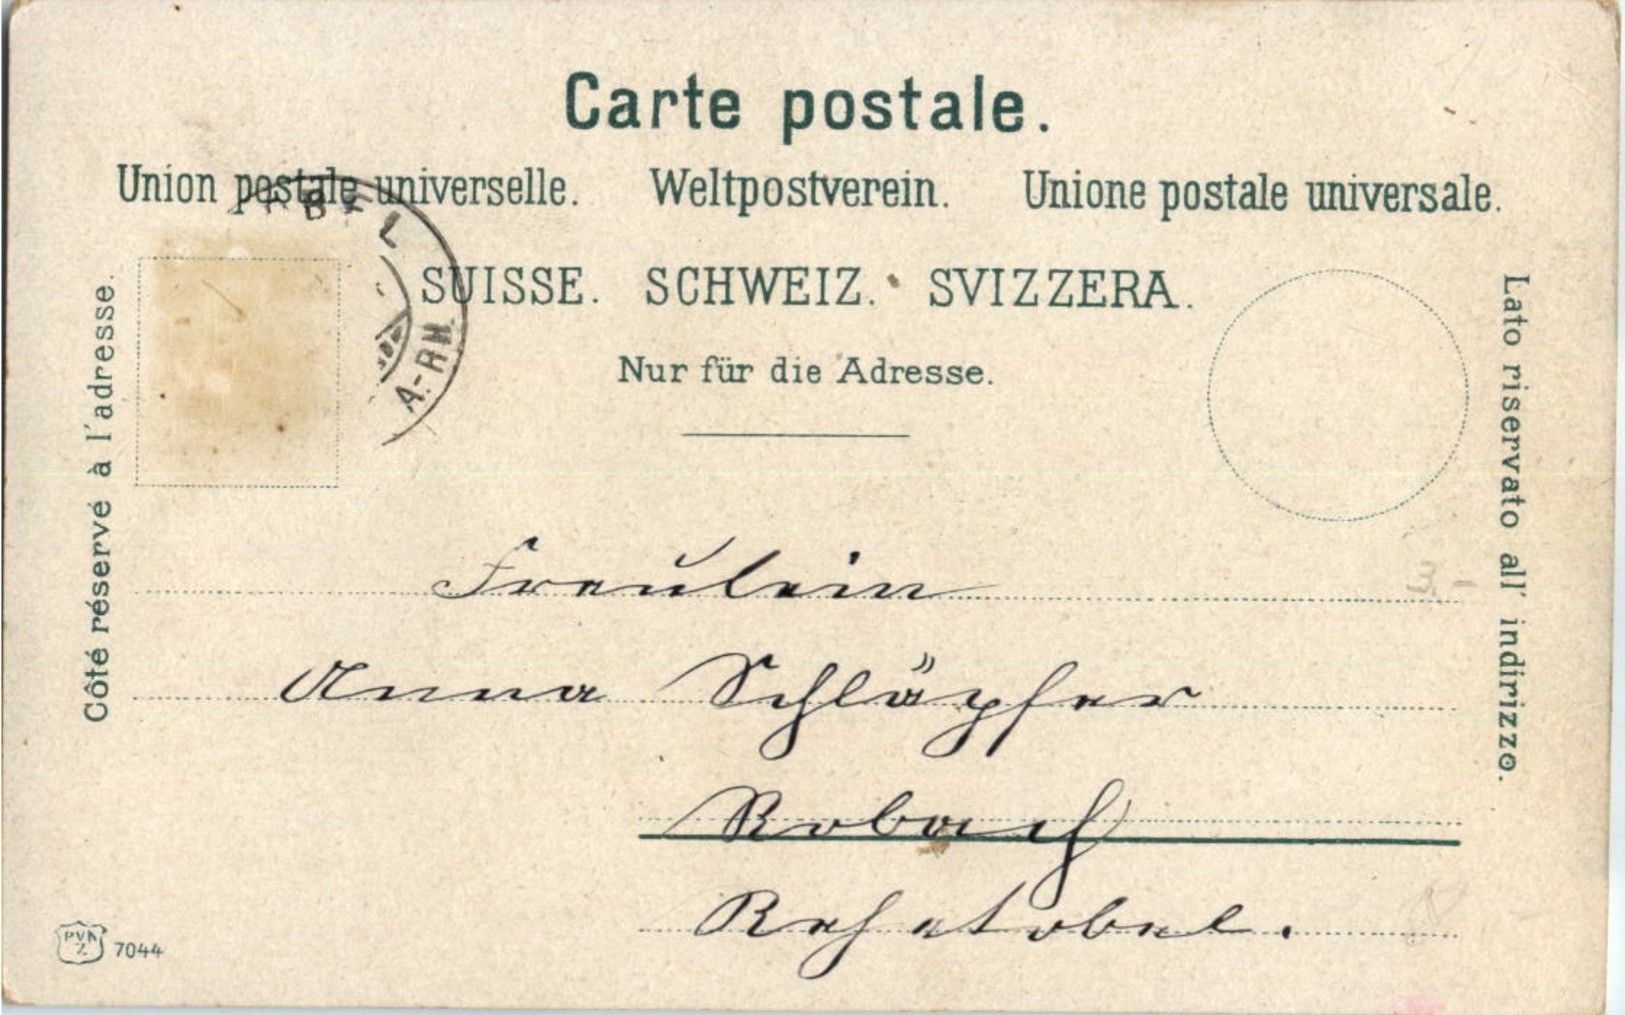 Carte postale.
Union postale universelle. Weltpostverein. Unione postale universale.
SUISSE. SCHWEIZ. SVIZZERA.
Nur für die Adresse.
Côté réservé à l'adresse.
Lato riservato all' indirizzo.
Fräulein
Anna Schläpfer
Robach
Rehetobel.
7044